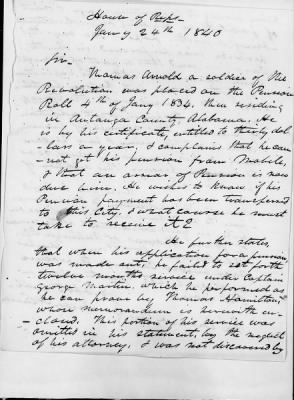 House of Reps
Jany 24th 1840
Sir
Thomas Arnold a soldier of the
Revolution was placed on the Pension
Roll 4th of Jany 1834. then residing
in Autauga County, Alabama. He
is by his certificate, entitled to thirty dol
-lars a year, & complains that he can
-not get his pension from Mobile,
& that an arrear of Pension is now
due him. He wishes to know if his
Pension payment has been transferred
to this City, & what course he must
take to receive it?
He further states,
that when his application for a pension,
was made out, he failed to set forth
twelve months service under Captain
George Martin. which he performed as
he can prove by Thomas Hamilton,
whose memorandum is herewith en-
closed. This portion of his service was
omitted in his statement, by the neglect
of his attorney, & was not discovered by